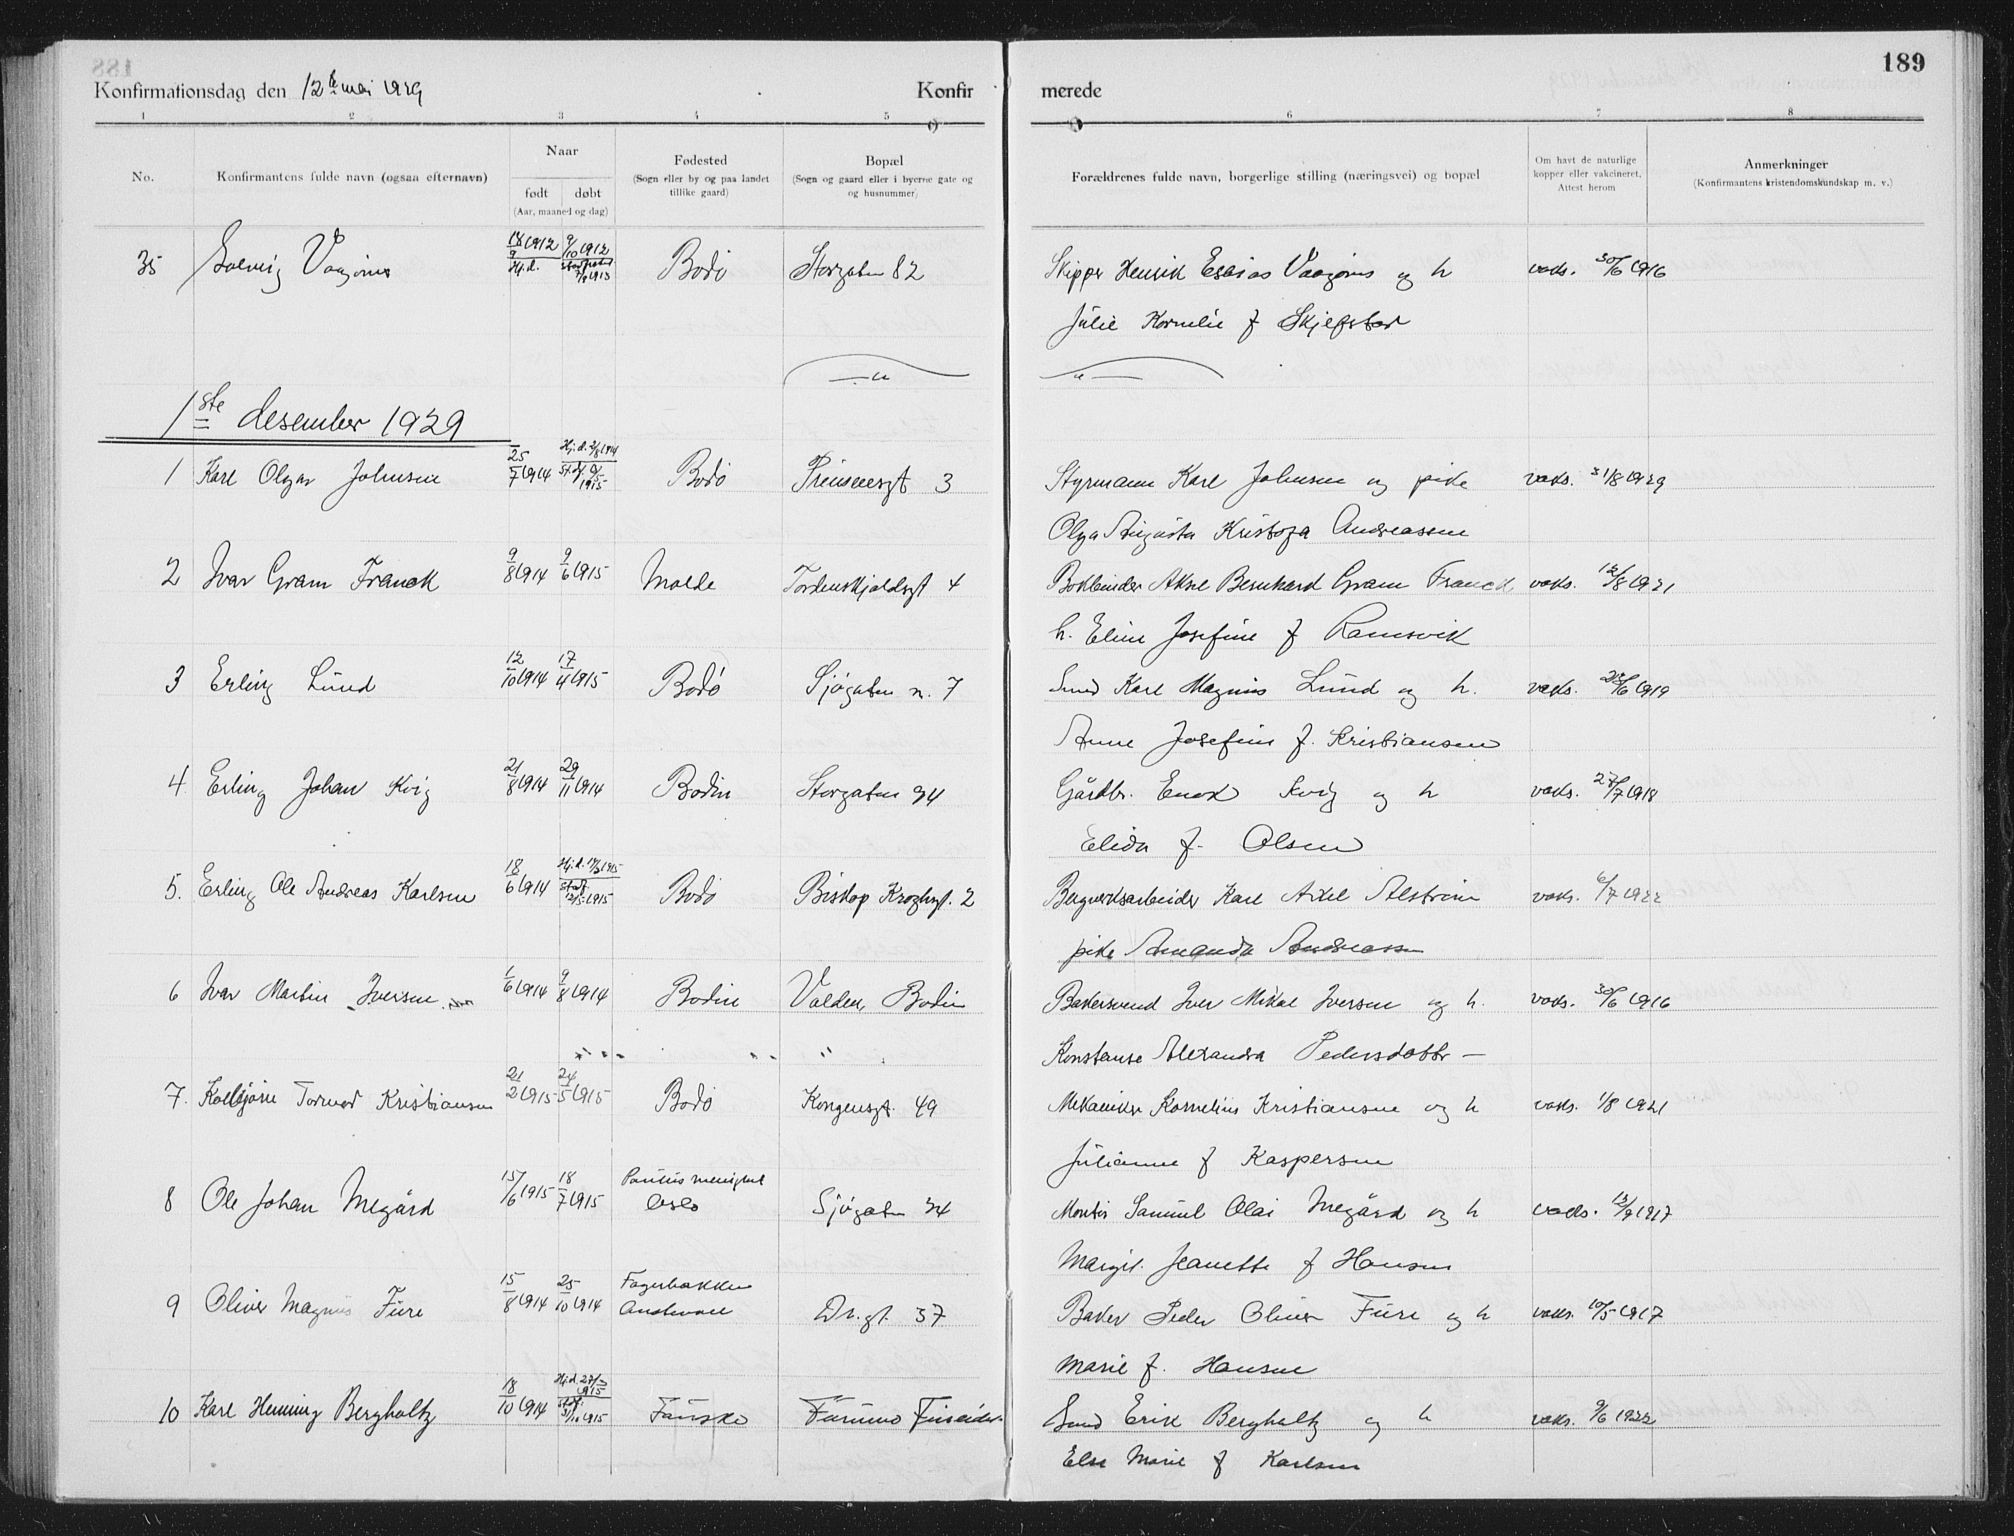 188
189
Konfirmationsdag den 12te mai 1929
Konfirmerede
1 2 3 4 5 6 7 8
No.
Konfirmantens fulde navn (ogsaa efternavn)
Naar
født døbt
(Aar, maaned og dag)
Fødested
(Sogn eller by og paa landet
tillike gaard)
Bopæl
(Sogn og gaard eller i byerne gate og
og husnummer)
Forældrenes fulde navn, borgerlige stilling (næringsvei) og bopæl
Om havt de naturlige
kopper eller vakcineret.
Attest herom
Anmerkninger
(Konfirmantens kristendomskundskap m. v.)
35 Solveig Vaagønes 18/9 1912 9/10 1912 Hj.d. Bodø Storgaten 82 Skipper Henrik Esaias Vaagønes og h vaks. 30/6 1916
Julie Kornelie f Skjelstad
1ste desember 1929
1 Karl Olgar Johnsen 25/7 1914 Hj.d. 2/8 1914 Bodø Prinsensgt 3 Styrmann Karl Johnsen og pike vaks. 31/8 1929
1915
Olga Augusta Kristofa Andreassen
2 Ivar Gram Franck 9/8 1914 9/6 1915 Molde Tordenskjoldsgt 4 Bokbinder Aksel Bernhard Gram Franck vaks. 12/8 1921
h. Eline Josefine f Ramsvik
3 Erling Lund 12/10 1914 17/4 1915 Bodø Sjøgaten n. 7 Smed Karl Magnus Lund og h. vaks. 28/6 1919
Anne Josefine f. Kristiansen
4 Erling Johan Kvig 21/8 1914 29/11 1914 Bodin Storgaten 94 Gårdbr. Enok Kvig og h vaks. 27/7 1918
Elida f. Olsen
5. Erling Ole Andreas Karlsen 18/6 1914 Hj.d. 1915 Bodø Biskop Kroghsgt. 2 Bergverksarbeider Karl Axel Alstrøm vaks. 6/7 1922
pike Amanda Andreassen
6 Ivar Martin Iversen 1/6 1914 9/8 1914 Bodin Valden, Bodin Bakersvend Iver Mikal Iversen og h. vaks. 30/6 1916
Konstanse Alexandra Pedersdatter —
7. Kolbjørn Tormod Kristiansen 21/2 1915 24/5 1915 Bodø Kongensgt. 49 Mekaniker Kornelius Kristiansen og h vaks. 1/8 1921
Julianne f Kaspersen
8 Ole Johan Megård 15/6 1915 18/7 1915 Paulus menighet Oslo Sjøgaten 34 Montør Samuel Olai Megård og h vaks. 13/9 1917
Margit Jeanette f Hansen
9 Oliver Magnus Fure 15/8 1914 25/10 1914 Fagerbakken Ankenes Dr.gt. 37 Baker Peder Oliver Fure og h vaks. 10/5 1917
Marie f. Hansen
10 Karl Henning Bergholtz 18/10 1914 Hj.d. 27/3 1915 Fauske Furumo Smed Erik Bergholtz og h vaks. 9/6 1922
Else Marie f Karlsen